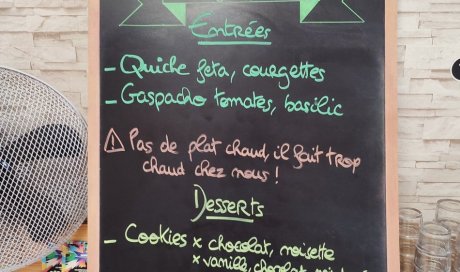 Entrées
- Quiche feta, courgettes
- Gaspacho tomates, basilic
⚠ Pas de plat chaud, il fait trop
chaud chez nous !
Desserts
- Cookies x chocolat, noisette
x vanille, chocolat,